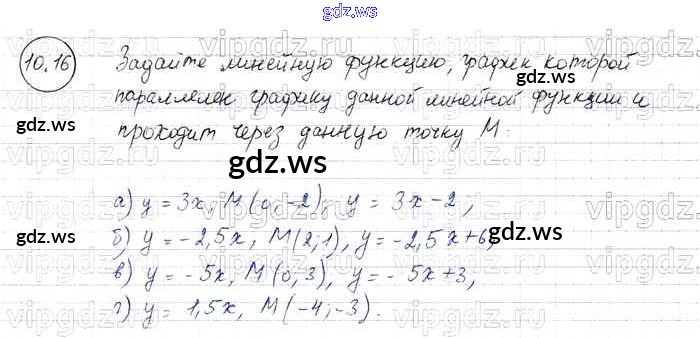 gdz.ws
10.16 Задайте линейную функцию, график которой
параллелен графику данной линейной функции и
проходит через данную точку М:
а) y = 3x, М(0;-2), y = 3x-2;
б) y = -2,5x, М(2;1), y = -2,5x+6;
в) y = -5x, М(0;3), y = -5x+3,
г) y = 1,5x, М(-4;-3).
gdz.ws
gdz.ws
gdz.ws
gdz.ws
gdz.ws
gdz.ws